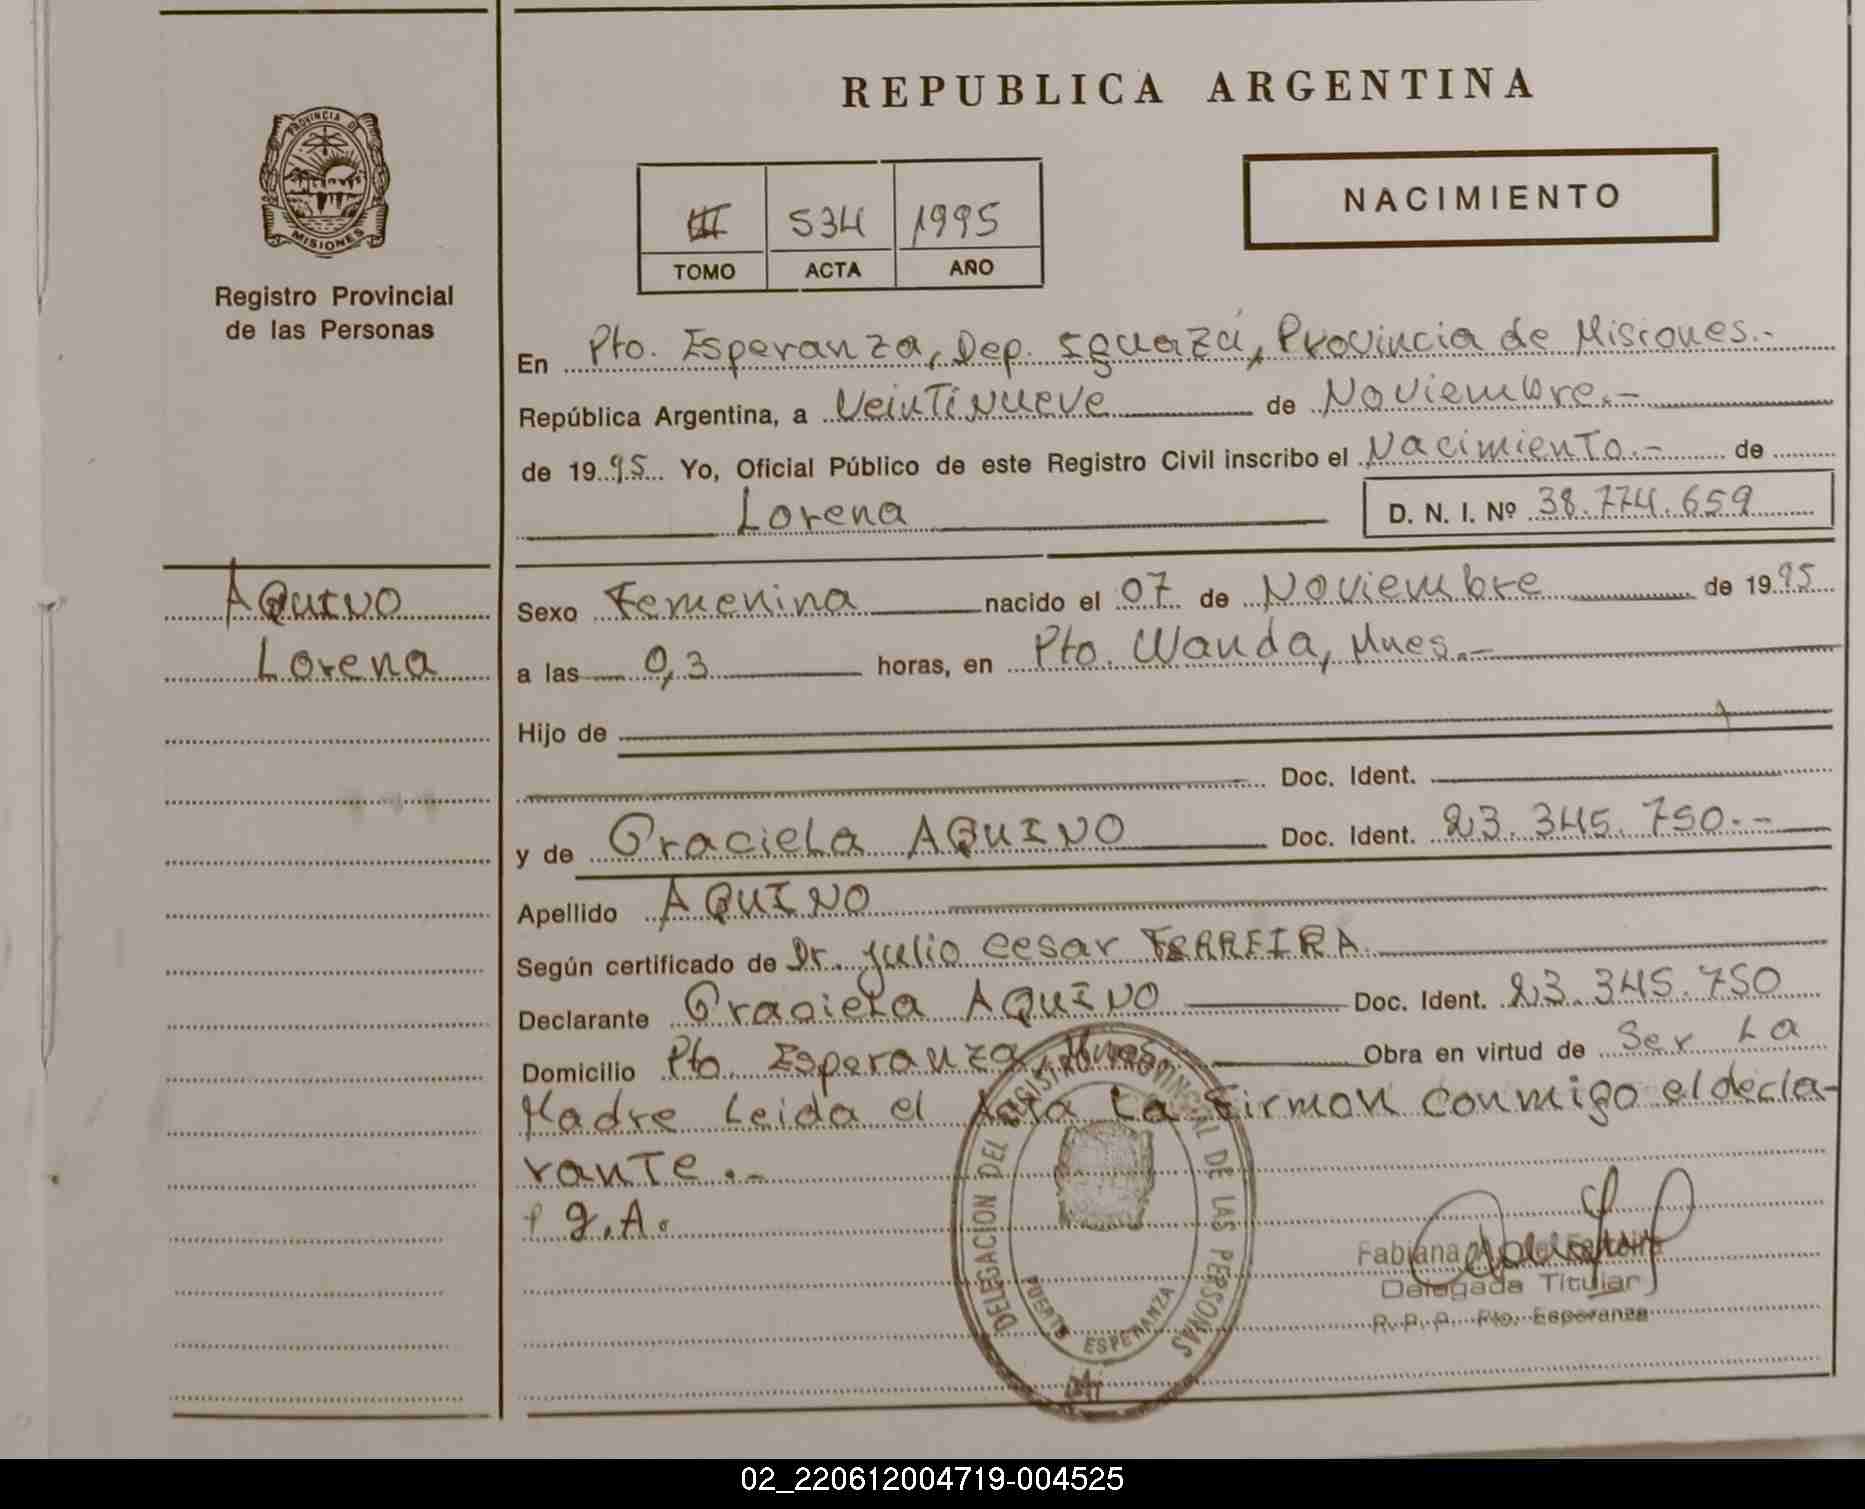 REPUBLICA ARGENTINA
PROVINCIA DE
MISIONES
Registro Provincial
de las Personas
III 534 1995
TOMO ACTA AÑO
NACIMIENTO
En Pto. Esperanza, Dep. Iguazú, Provincia de Misiones.-
República Argentina, a Veintinueve de Noviembre.-
de 1995 Yo, Oficial Público de este Registro Civil inscribo el Nacimiento.- de
Lorena D. N. I. Nº 38.774.659
AQUINO
Lorena
Sexo Femenina nacido el 07 de Noviembre de 1995
a las 0,3 horas, en Pto. Wanda, Mnes.-
Hijo de
Doc. Ident.
y de Graciela AQUINO Doc. Ident. 23.345.750.-
Apellido AQUINO
Según certificado de Dr. Julio Cesar FERREIRA
Declarante Graciela AQUINO Doc. Ident. 23.345.750
Domicilio Pto. Esperanza Mnes Obra en virtud de Ser La
Madre Leida el Acta La firman conmigo el decla-
rante.-
g.A.
DELEGACION DEL REGISTRO PROVINCIAL DE LAS PERSONAS
PUERTO ESPERANZA
Fabiana
Delegada Titular
R. P. P. Pto. Esperanza
02_220612004719-004525